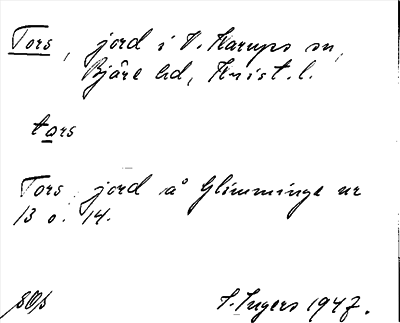 Tors, jord i V. Karups sn,
Bjäre hd, Krist. l.
tors
Tors jord å Glimminge nr
13 o. 14.
I. Ingers 1947.